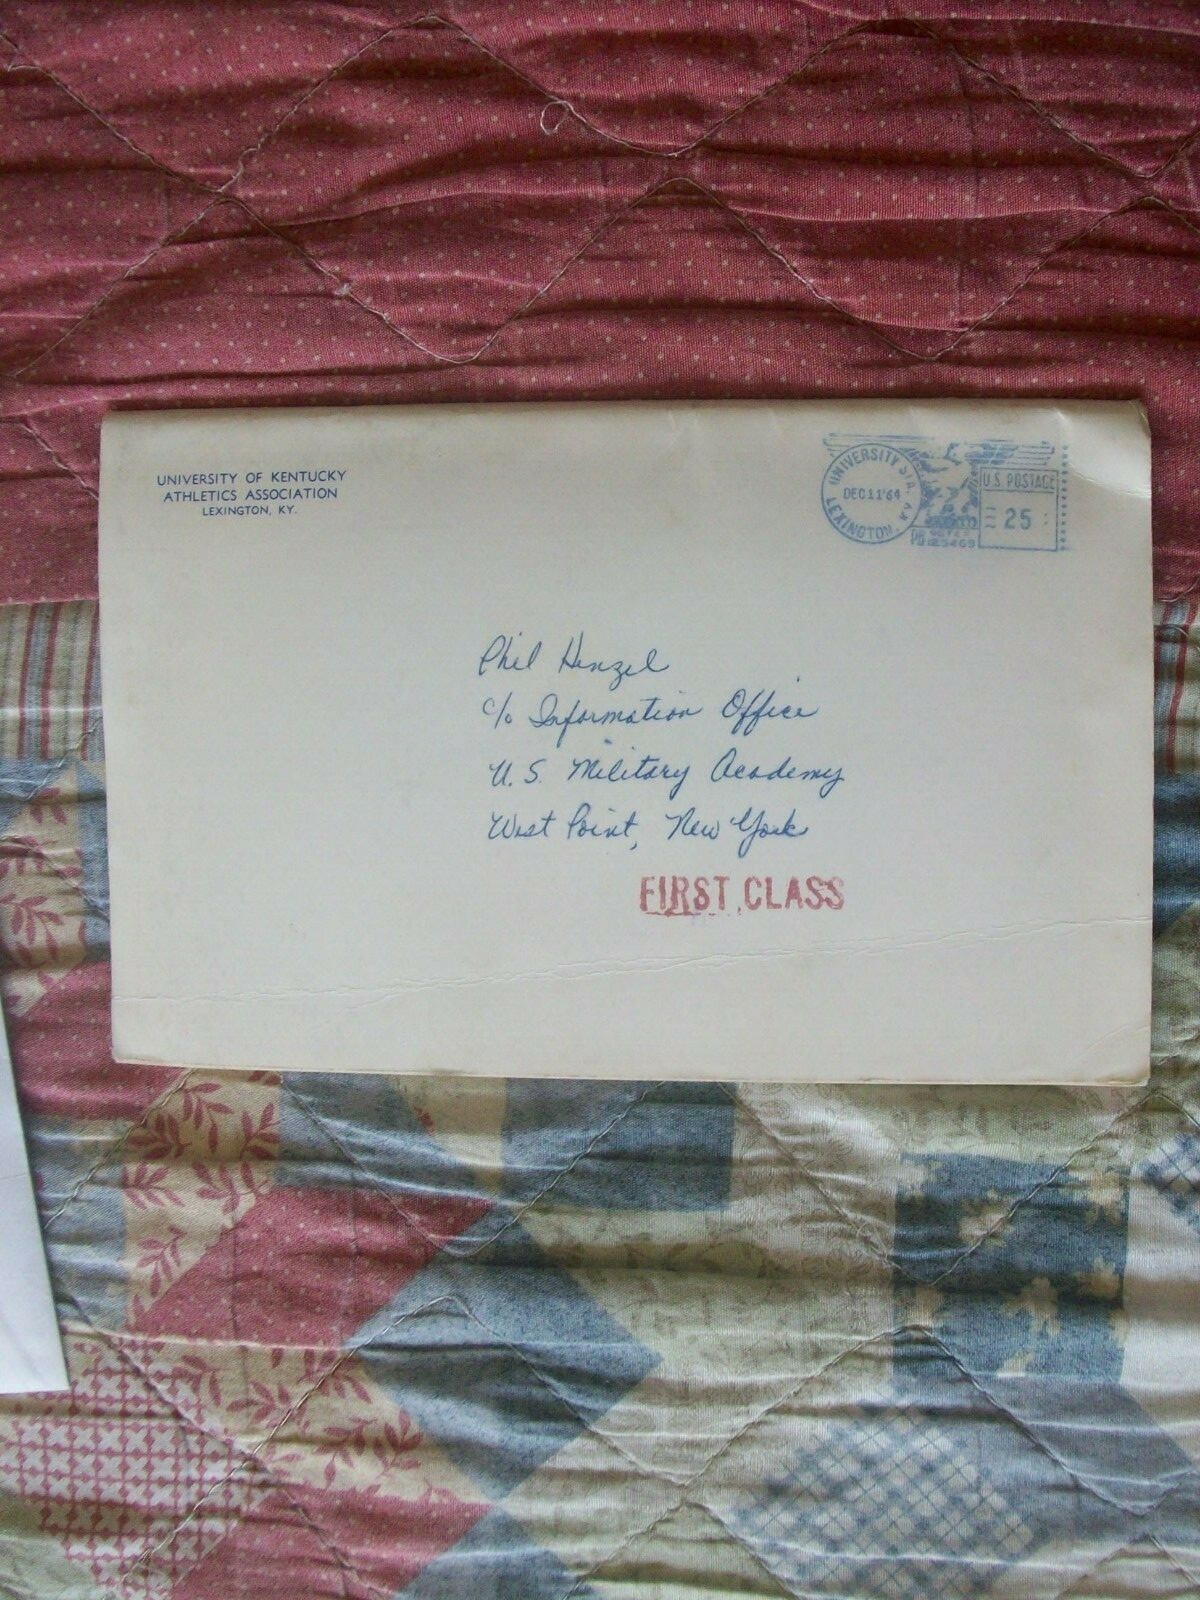 UNIVERSITY OF KENTUCKY
ATHLETICS ASSOCIATION
LEXINGTON, KY.
UNIVERSITY STA.
DEC 11 '64
LEXINGTON, KY
U.S. POSTAGE
25
PB METER
Phil Henzel
c/o Information Office
U.S. Military Academy
West Point, New York
FIRST CLASS